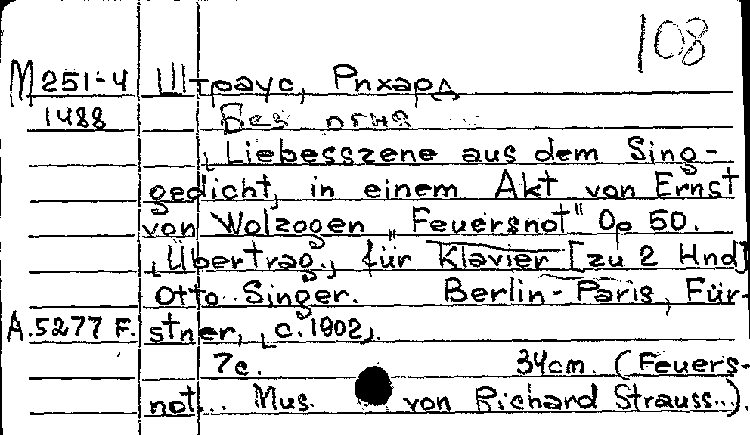 108
М 251-4 Штраус, Рихард
1488 Без огня
Liebesszene aus dem Sing-
gedicht, in einem Akt von Ernst
von Wolzogen „Feuersnot" Op 50.
[Übertrag.] für Klavier [zu 2 Hnd]
Otto Singer. Berlin-Paris, Für-
A.5277 F. stner, [c.1902].
7c. 34cm. (Feuers-
not... Mus. von Richard Strauss..).